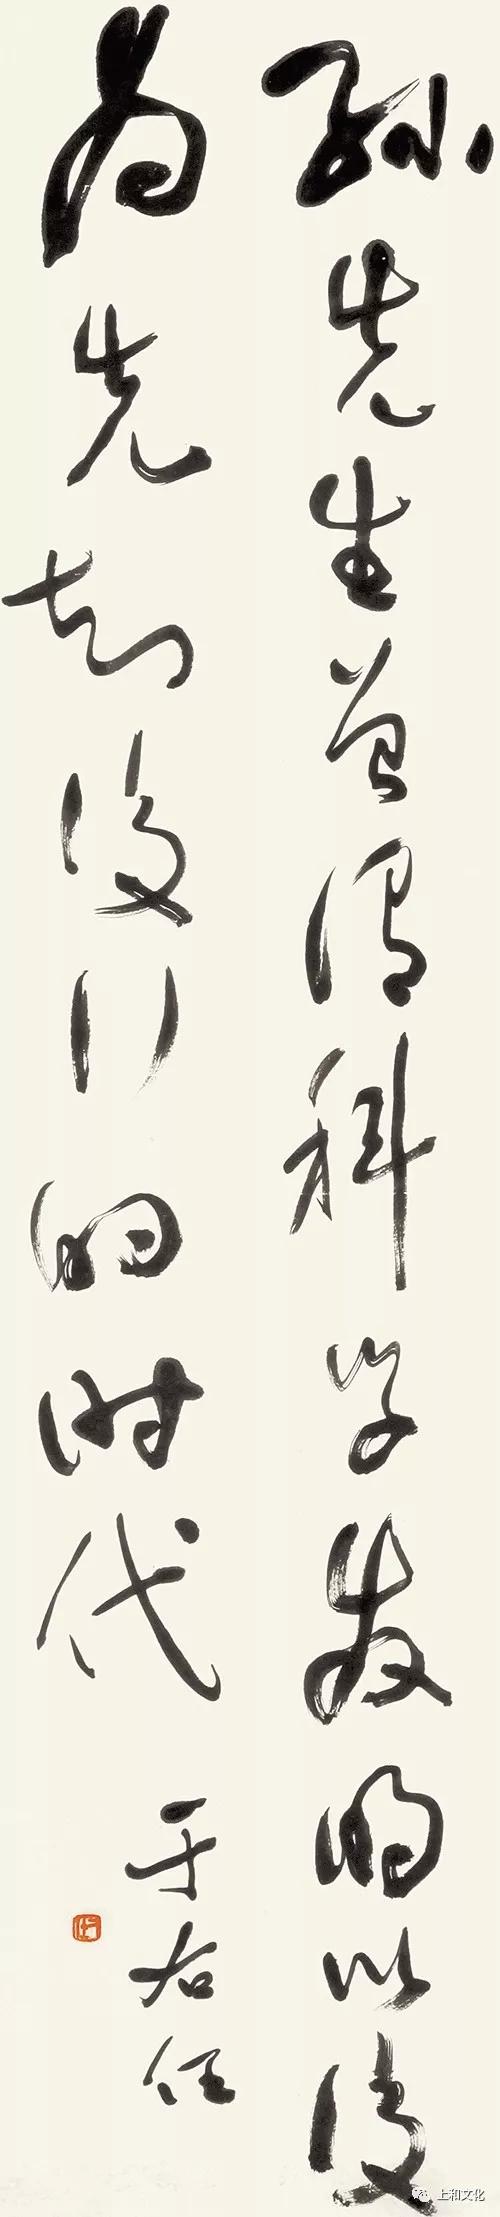 孙先生曾谓科学发明以后
为先知后行的时代
于右任
上和文化